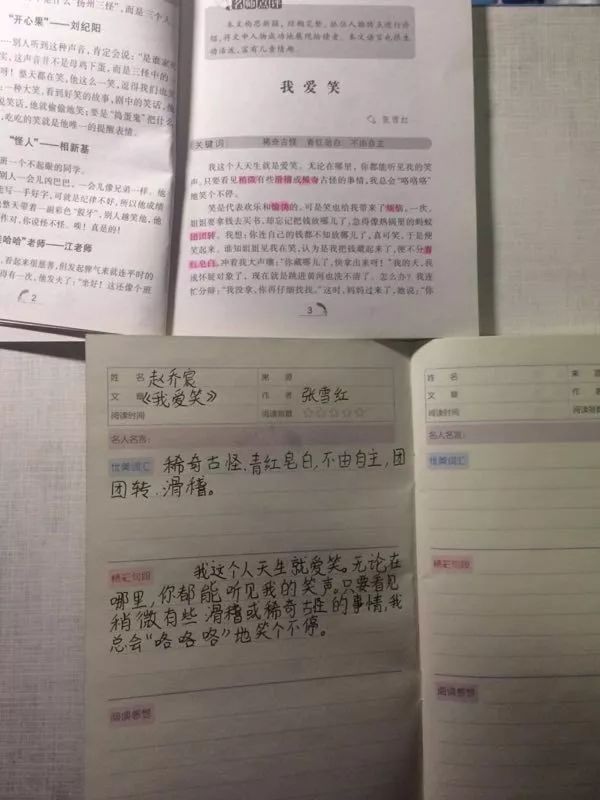 什么是“扬州三怪”，而是三个人
“开心果”——刘纪阳
别人听到这种声音，肯定会说：“是谁家
实，这声音并不是母鸡下蛋，而是三怪中的
呀！整天都在笑，他这么一笑，逗得我们也笑
一种大笑，看到好笑的故事，剧中的笑话，他
说笑话，他就偷偷地笑；要是“捣蛋鬼”把什么
吃吃的笑就是他唯一的提醒表情。
“怪人”——相新基
班一个不起眼的同学。
别人一会儿凶巴巴，一会儿像兄弟一样。他
能写一手好字，可就是纪律不好，所以他成绩
整天都带着一副彩色“假牙”，别人越笑他，他
作对，你说怪不怪。唉！真是的！
哇哈哈”老师——江老师
看起来很慈善，但发起脾气来就连平时的
得有一次，他发火了：“坐好！这还像个班
2
名师点评
本文构思新颖，结构完整，抓住人物特点进行介
绍，将文中人物成功地展现给读者。本文语言也很生
动活泼，富有儿童情趣。
我爱笑
张雪红
关键词： 稀奇古怪 青红皂白 不由自主
我这个人天生就是爱笑。无论在哪里，你都能听见我的笑
声。只要看见稍微有些滑稽或稀奇古怪的事情，我总会“咯咯咯”
地笑个不停。
笑是代表欢乐和愉快的。可是笑也给我带来了烦恼。一次，
姐姐要拿钱去买书，却忘记把钱放哪儿了，急得像热锅里的蚂蚁
团团转。我想：你连自己的钱都不知放哪儿了，真可笑，于是便
笑起来。谁知姐姐见我在笑，认为是我把钱藏起来了，便不分青
红皂白，冲着我大声嚷：“你藏哪儿了，快拿出来呀！”我的天，我
成怀疑对象了，现在就是跳进黄河也洗不清了。怎么办？我连
忙分辩：“我没拿，你再仔细找找。”这时，妈妈过来了，她说：“你
3
姓 名 赵乔宸 来 源
文 章 《我爱笑》 作 者 张雪红
阅读时间 阅读指数 ☆☆☆☆☆
名人名言：
优美词汇 稀奇古怪、青红皂白、不由自主、团
团转、滑稽。
精彩句段 我这个人天生就爱笑。无论在
哪里，你都能听见我的笑声。只要看见
稍微有些滑稽或稀奇古怪的事情，我
总会“咯咯咯”地笑个不停。
阅读感想
姓 名 来 源
文 章 作 者
阅读时间 阅读指数
名人名言：
优美词汇
精彩句段
阅读感想